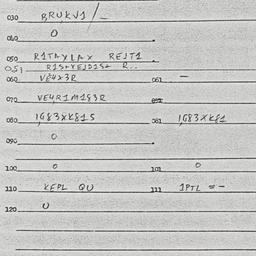 030 BRUKV1/_
040 O
050 R1TAYLAX REJT1
051
060 VE4X3R 061 -
070 VE4R1M183R
080 1G83XK815 081 1G83XK81
090 O
100 O 101 O
110 KEPL QU 111 1PTL = -
120 U